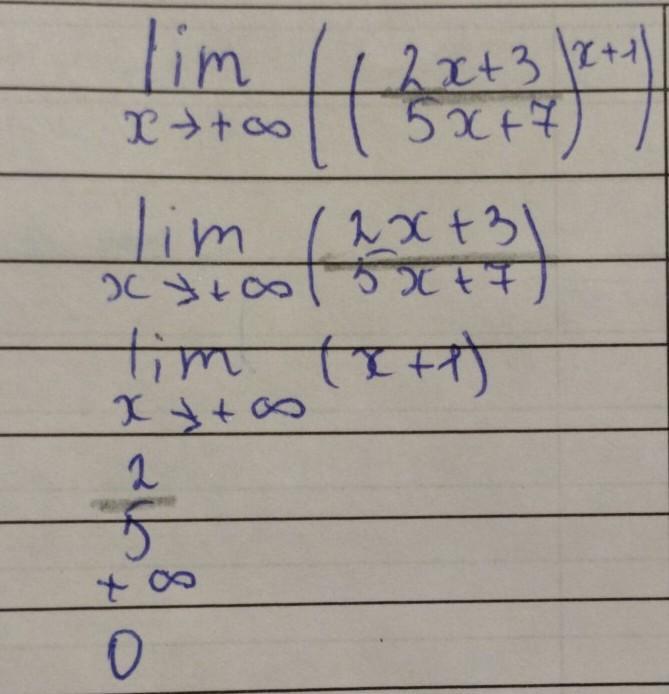 lim x→+∞ ((2x+3/5x+7)^x+1)
lim x→+∞ (2x+3/5x+7)
lim x→+∞ (x+1)
2/5
+∞
0